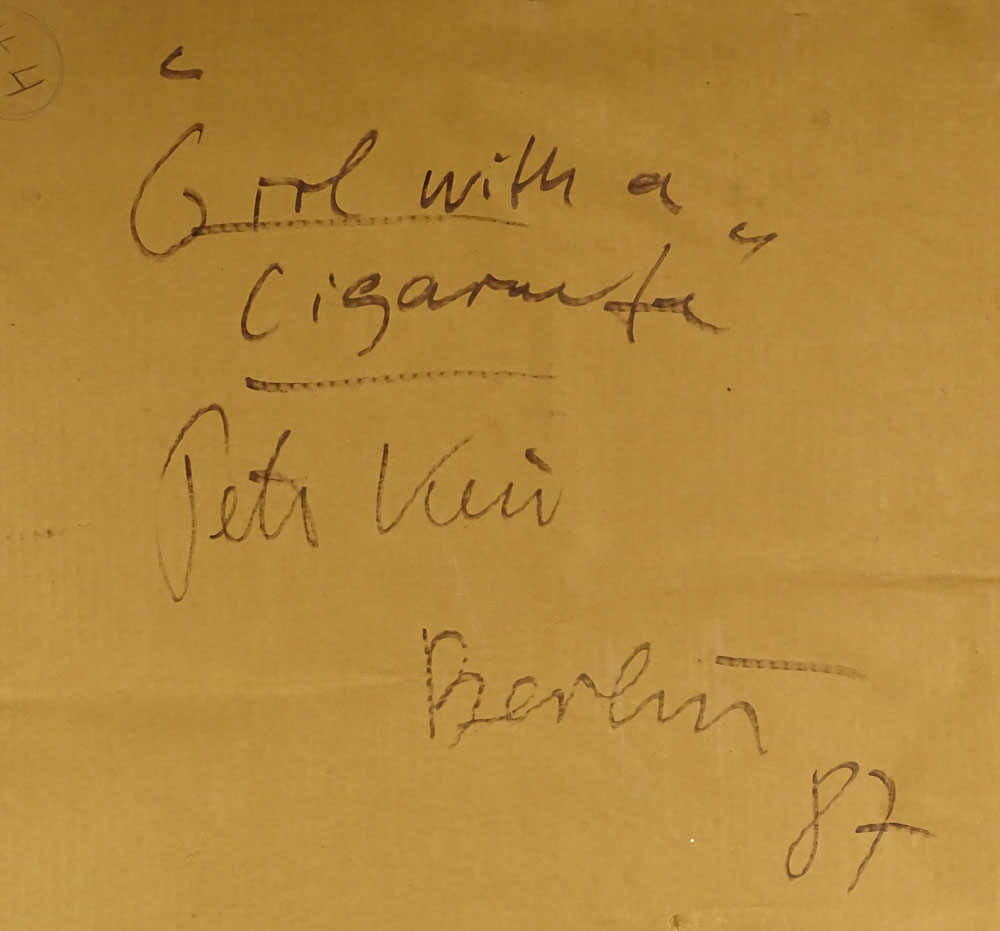 "Girl with a
cigarette"
Petr
Berlin
87